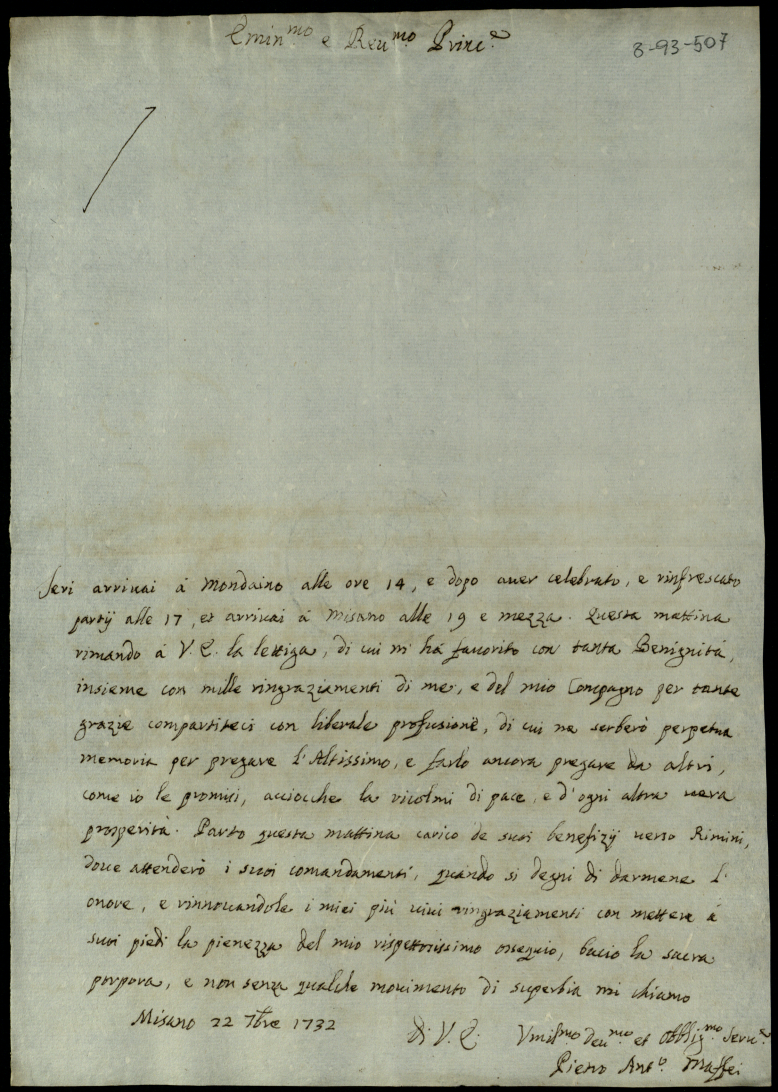 Emin.mo e Reu.mo Princ.e
8-93-507
Ieri arriuai à Mondaino alle ore 14, e dopo auer celebrato, e rinfrescato
partij alle 17, et arriuai à Misano alle 19 e mezza. Questa mattina
rimando à V. E. la lettiga, di cui m' hà fauorito con tanta Benignità,
insieme con mille ringraziamenti di me, e del mio Compagno per tante
grazie compartiteci con liberale profusione, di cui ne serberò perpetua
memoria per pregare l'Altissimo, e farlo ancora pregare da altri,
come io le promisi, acciocche la ricolmi di pace, e d'ogni altra uera
prosperità. Parto questa mattina carico de suoi benefizij uerso Rimini,
doue attenderò i suoi comandamenti, quando si degni di darmene l'
onore, e rinnouandole i miei più uiui ringraziamenti con mettere à
suoi piedi la pienezza del mio rispettosissimo ossequio, bacio la sacra
porpora, e non senza qualche mouimento di superbia mi chiamo
Misano 22 7bre 1732
Di V. E. Vmil.mo Deu.mo et Obblig.mo Seru.e
Pietro Ant.o Maffei